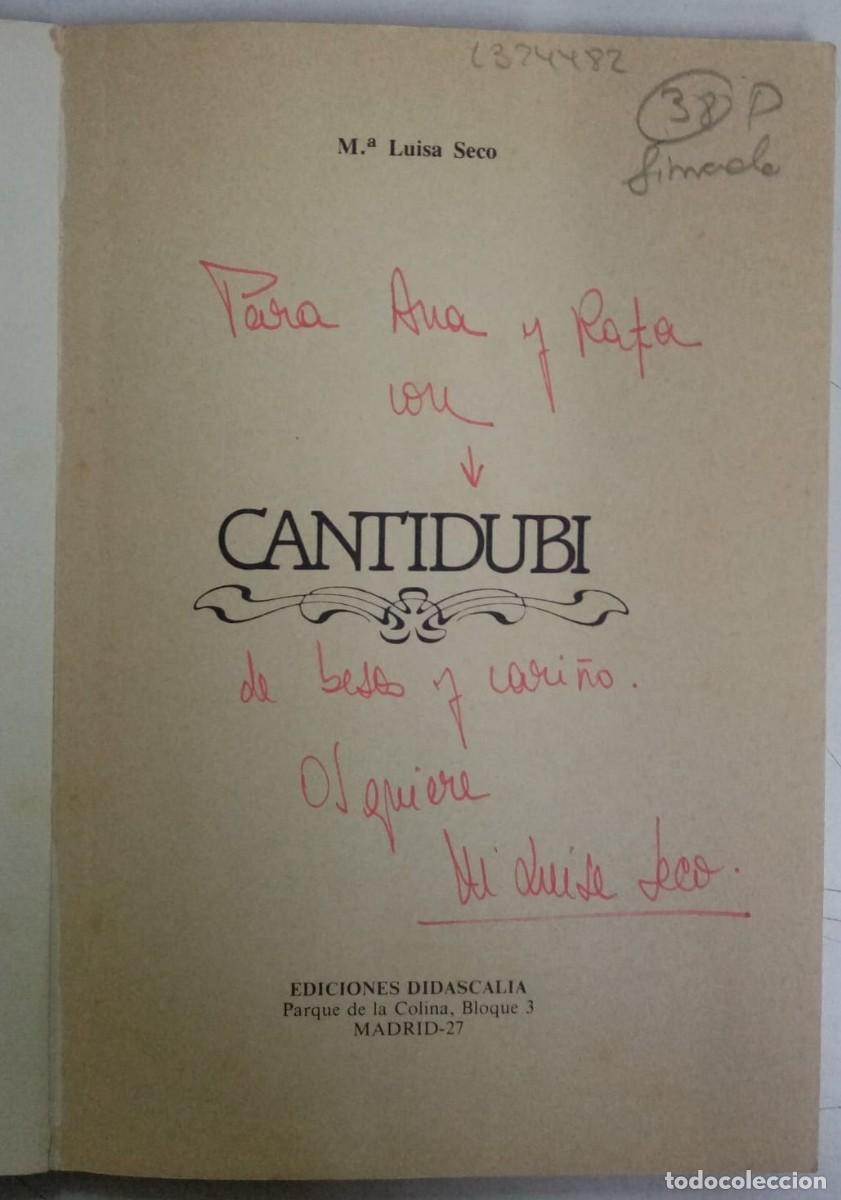 L324482
38 P
firmado
M.ª Luisa Seco
Para Ana y Rafa
con
↓
CANTIDUBI
de besos y cariño.
Os quiere
Mª Luisa Seco.
EDICIONES DIDASCALIA
Parque de la Colina, Bloque 3
MADRID-27
todocoleccion